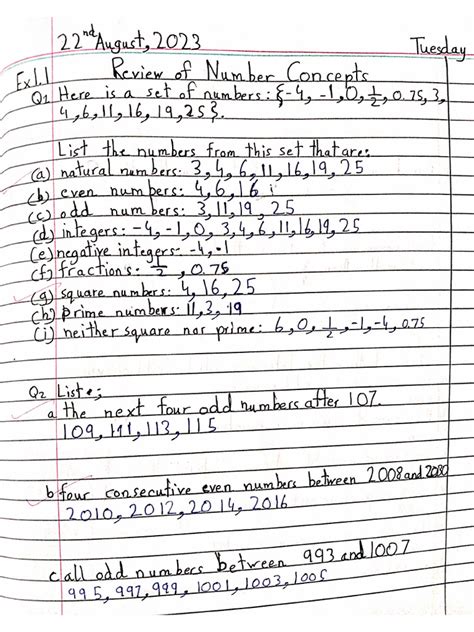 22nd August, 2023 Tuesday
Ex 1.1 Review of Number Concepts
Q1 Here is a set of numbers: {-4, -1, 0, 1/2, 0.75, 3,
4, 6, 11, 16, 19, 25}.
List the numbers from this set that are:
(a) natural numbers: 3, 4, 6, 11, 16, 19, 25
(b) even numbers: 4, 6, 16
(c) odd numbers: 3, 11, 19, 25
(d) integers: -4, -1, 0, 3, 4, 6, 11, 16, 19, 25
(e) negative integers: -4, -1
(f) fractions: 1/2, 0.75
(g) square numbers: 4, 16, 25
(h) prime numbers: 11, 3, 19
(i) neither square nor prime: 6, 0, 1/2, -1, -4, 0.75
Q2 List:
a the next four odd numbers after 107.
109, 111, 113, 115
b four consecutive even numbers between 2008 and 2080
2010, 2012, 2014, 2016
c all odd numbers between 993 and 1007
995, 997, 999, 1001, 1003, 1005